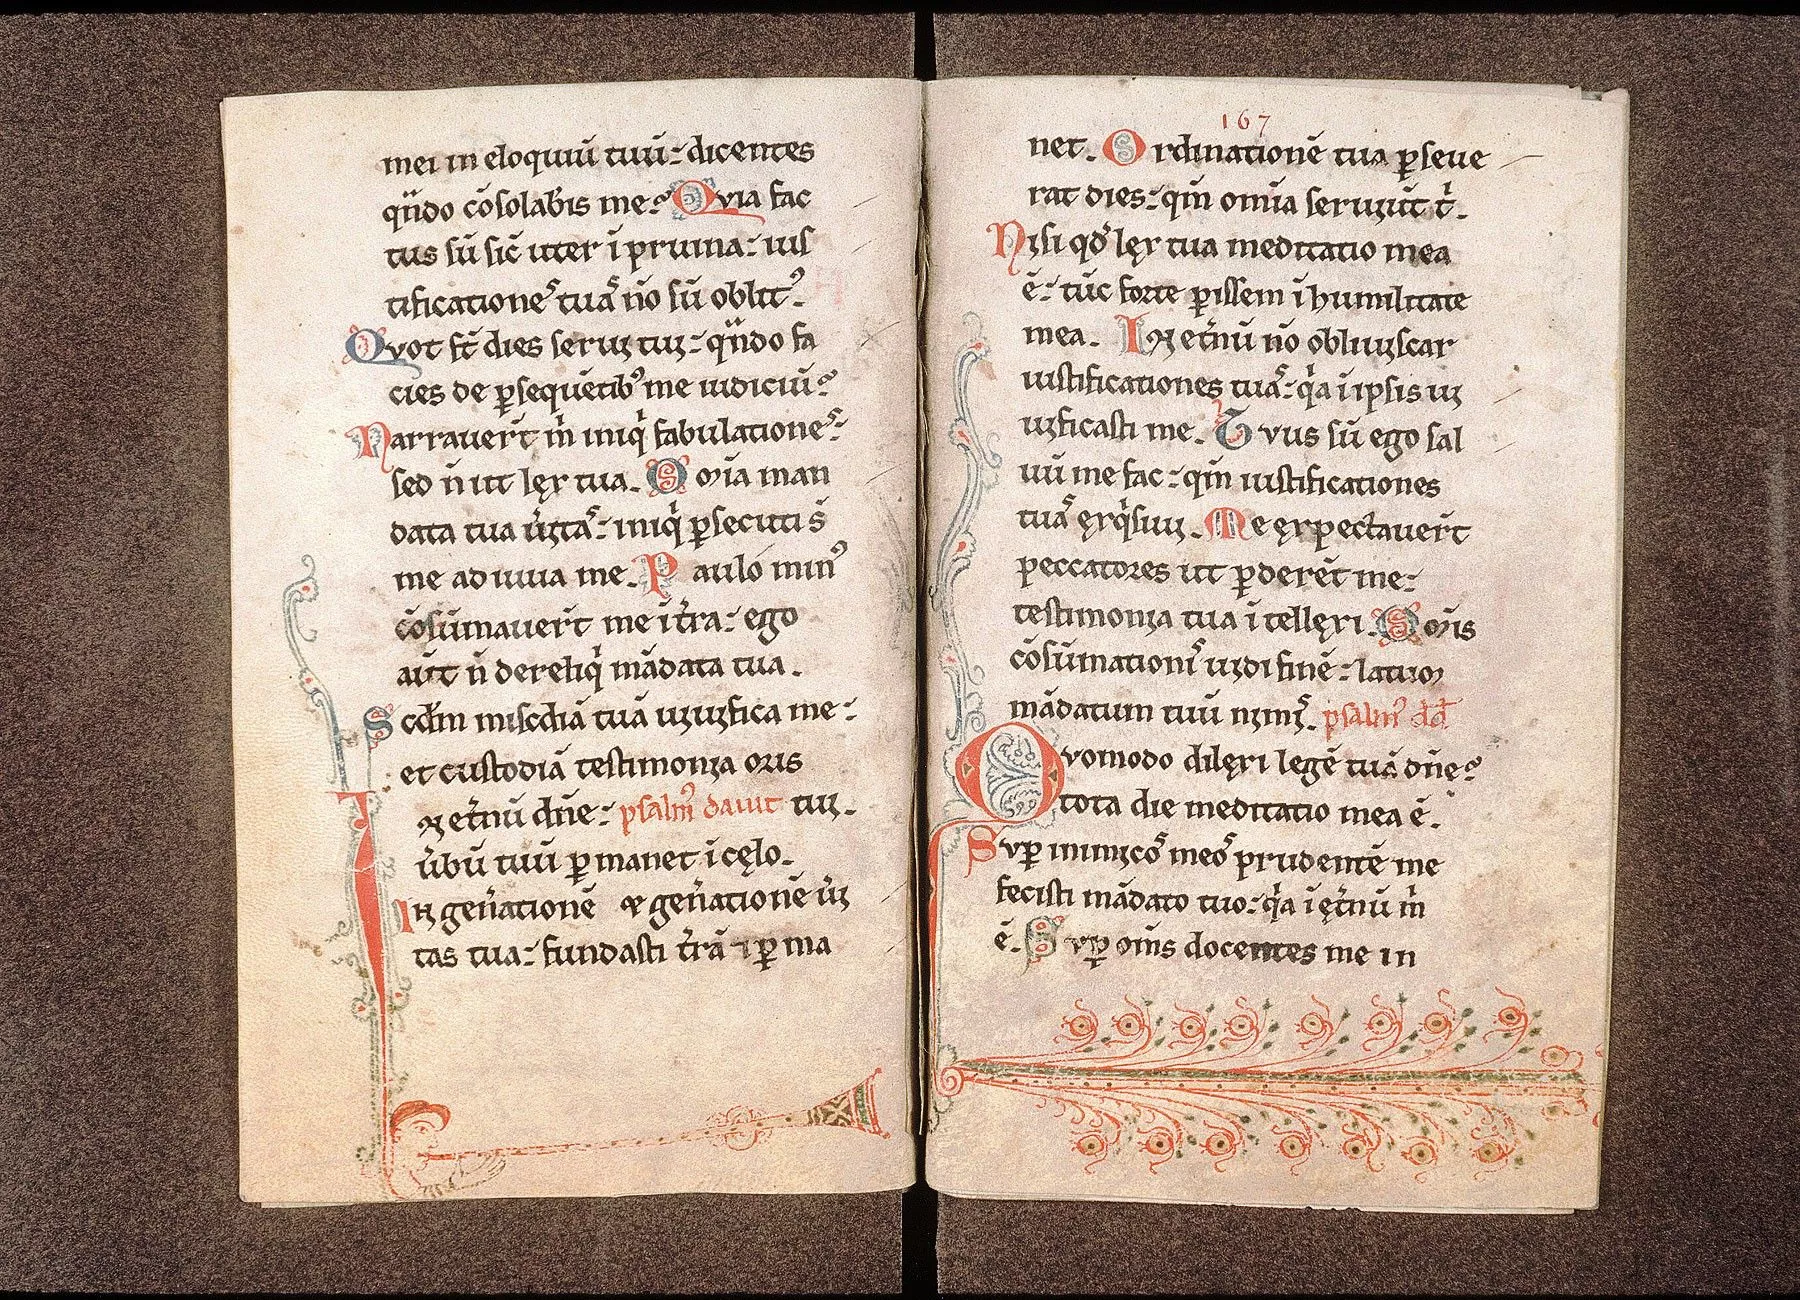 mei in eloquiū tuū: dicentes
qn̄do cōsolab'is me? Qvia fac
tus sū sic̄ uter ī pruina: ius
tificationeˢ tuaˢ nō sū oblit'.
Qvot st̄ dies seruı tuı: qn̄do fa
cies de ꝑsequētib' me iudiciū?
Narrauer̄t m̄ iniq̇ fabulationeˢ:
sed n̄ ut lęx tua. Om̄ia man
data tua ūitaˢ: iniq̇ ꝑsecuti s̄
me adiuua me. Paulo min'
cōsūmauer̄t me ī t̄ra: ego
aūt n̄ dereliq̇ mādata tua.
Scd̄m misc̄diā tuā uiuifica me:
et custodiā testimonia oris
IN et̄nū dn̄e: psalm̄ dauit tui.
ūbū tuū ꝑmanet ī cęlo.
IN gen̄ationē et gen̄ationē ūi
tas tua: fundasti t̄rā ⁊ ꝑma
167
net. Ordinationē tua ꝑseue
rat dies: qm̄ om̄ia seruiūt t̄.
Nisi qd̄ lęx tua meditatio mea
ē: tūc forte ꝑissem ī humilitate
mea. IN et̄nū nō obliuiscar
iustificationes tuaˢ: q̇a ī ipsis ui
uificasti me. Tvus sū ego sal
uū me fac: qm̄ iustificationes
tuaˢ ęxq̇siui. Me ęxpectauer̄t
peccatores ut ꝑderēt me:
testimonia tua ītellęxi. Om̄is
cōsūmationiˢ uidi finē: latuꝫ
mādatum tuū nimiˢ. psalm̄ dd̄
Qvomodo dilęxi legē tuā dn̄e?
tota die meditatio mea ē.
Svꝑ inimicoˢ meoˢ prudentē me
fecisti mādato tuo: q̇a ī ęt̄nū m̄
ē. Svꝑ om̄s docentes me in